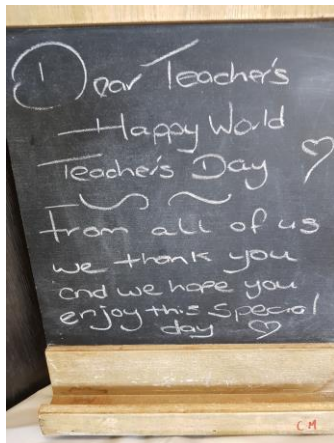 Dear Teacher's
Happy World
Teacher's Day
From all of us
we thank you
and we hope you
enjoy this special
day
CM